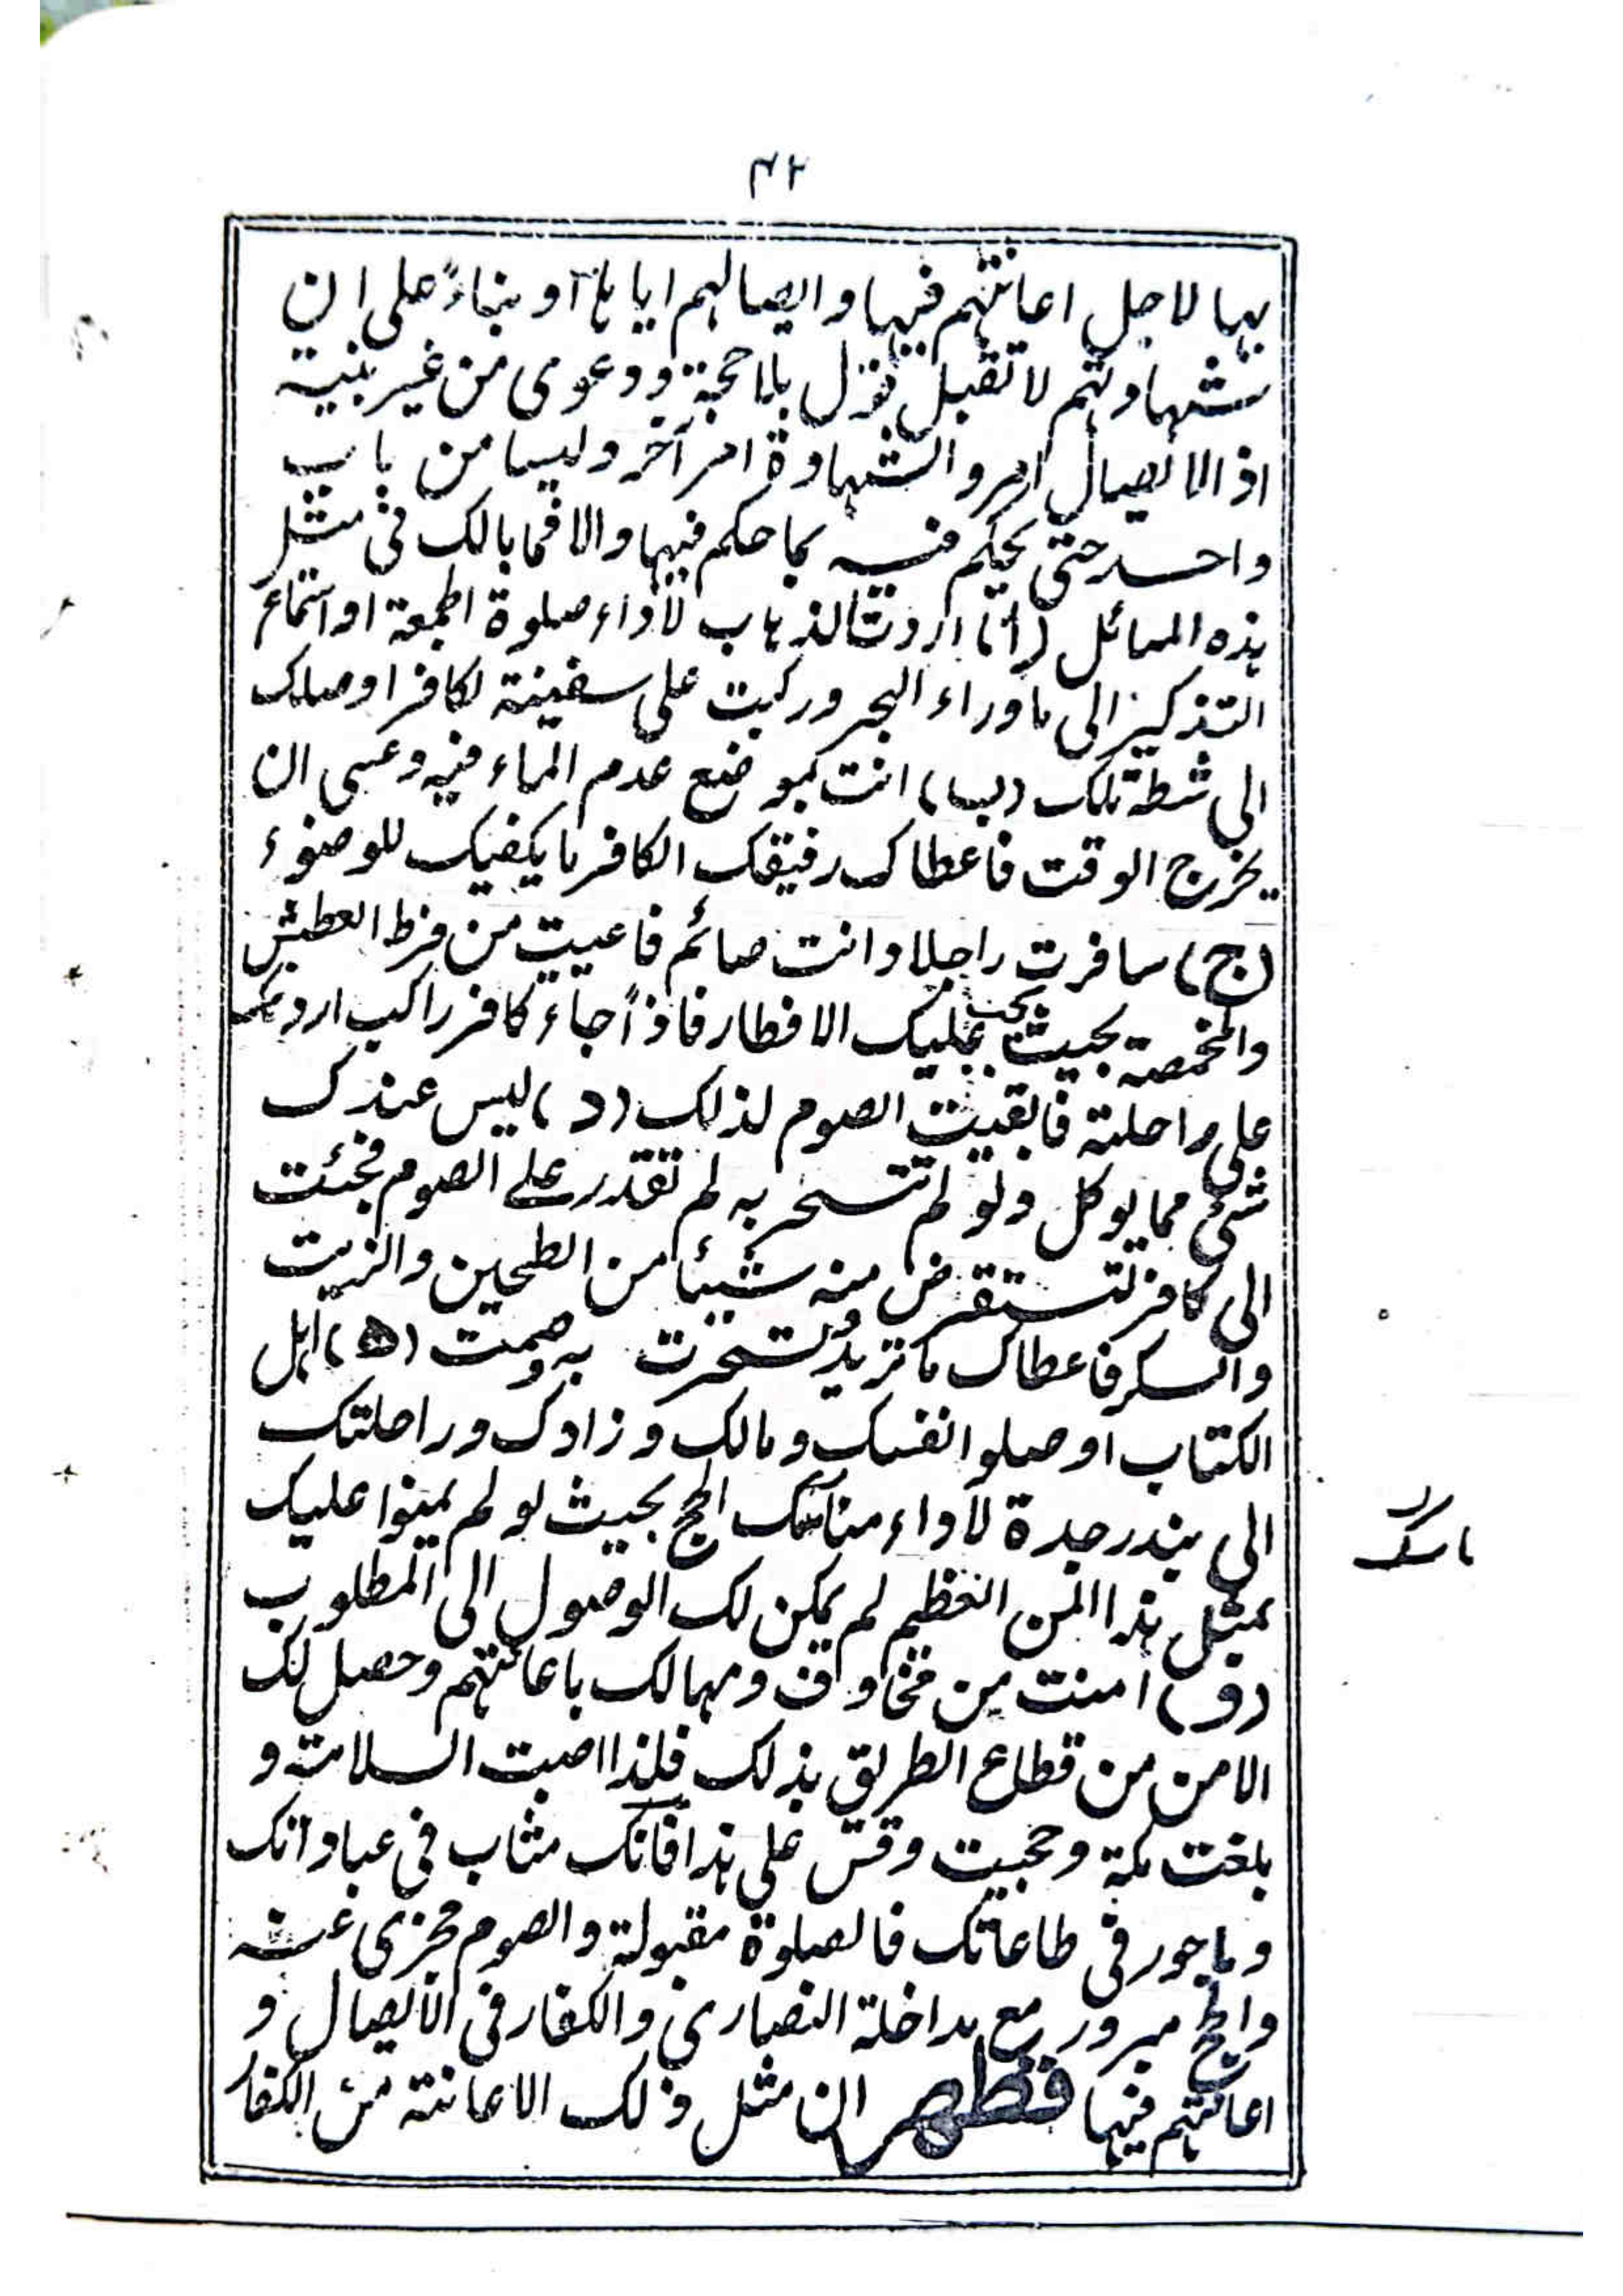 ٤٢
بها لاجل اعانتهم فيها وايصالهم اياها او بناءً على ان
شهادتهم لا تقبل تقول بلا حجة ودعوى من غير بينة
اذ الايصال امر والشهادة امر آخر وليسا من باب
واحد حتى يحكم فيه بما حكم فيها والا فما بالك فى مثل
هذه المسائل (ا) اردت الذهاب لاداء صلوة الجمعة او استماع
التذكير الى ما وراء البحر وركبت على سفينة لكافر اوصلك
الى شطة تلك (ب) انت بموضع عدم الماء فيه وعسى ان
يخرج الوقت فاعطاك رفيقك الكافر ما يكفيك للوضوء
(ج) سافرت راجلا وانت صائم فاعييت من فرط العطش
والمخمصة بحيث يجب عليك الافطار فاذاً جاء كافر راكب اردفك
على راحلته فابقيت الصوم لذلك (د) ليس عندك
شئ مما يوكل ولو لم تتسحر به لم تقدر على الصوم فجئت
الى كافر لتستقرض منه شيئا من الطحين والزيت
والسكر فاعطاك ما تريد وتسحرت به وصمت (ه) اهل
الكتاب اوصلوا نفسك ومالك وزادك وراحلتك
الى بندر جدة لاداء مناسك الحج بحيث لو لم يمنوا عليك
بمثل هذا المن العظيم لم يمكن لك الوصول الى المطلوب
(و) امنت من مخاوف ومهالك باعانتهم وحصل لك
الامن من قطاع الطريق بذلك فلذا اصبت السلامة و
بلغت مكة وحجيت وقس على هذا فانك مثاب فى عباداتك
وماجور فى طاعاتك فالصلوة مقبولة والصوم مجزى عنه
والحج مبرور مع مداخلة النصارى والكفار فى الايصال و
اعانتهم فيها فظهر ان مثل ذلك الاعانة من الكفار